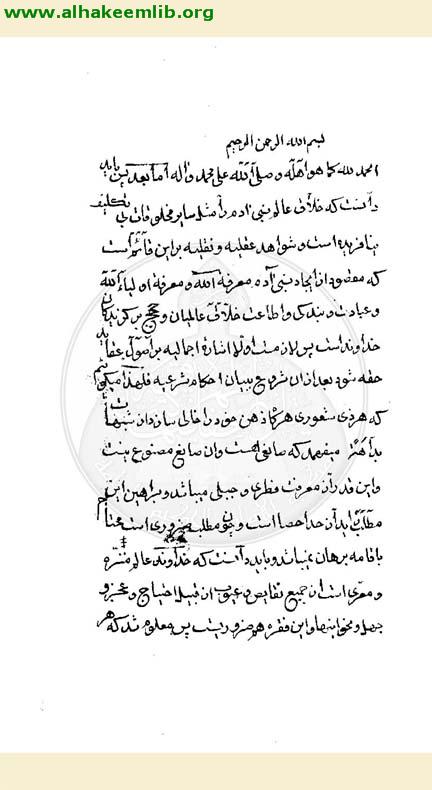 www.alhakeemlib.org
بسم الله الرحمن الرحیم
الحمد لله کما هو اهله و صلی الله علی محمد و اله اما بعد پس باید
دانست که خلاق عالم بنی ادم را مثل سایر مخلوقات بی تکلیف
نیافریده است و شواهد عقلیه و نقلیه بر این قائم است
که مقصود از ایجاد بنی آدم معرفة الله و معرفة اولیاء الله
و عبادت و بندکی و اطاعت خلاق عالمیان و حجج برکزیدکان
خداوند است پس لازم است اولا اشاره اجمالیه بر اصول عقاید
حقه شود بعد از ان شروع ببیان احکام شرعیه فلهذا میکوئیم
که هر ذی شعوری هرکاه ذهن خود را خالی سازد از شبهات
بداهة میفهمد که صانعی هست و ان صانع مصنوع نیست
و این قدر از معرفت فطری و جبلی میباشد و براهین این
مطلب زاید از حد احصا است و چون مطلب ضروری است محتاج
باقامه برهان نمیباشد و باید دانست که خداوند عالم منزه
و معری است از جمیع نقایص و عیوب از قبیل احتیاج و عجز و
جهل و نحو اینها و این فقره هم ضروریست پس معلوم شد که هر